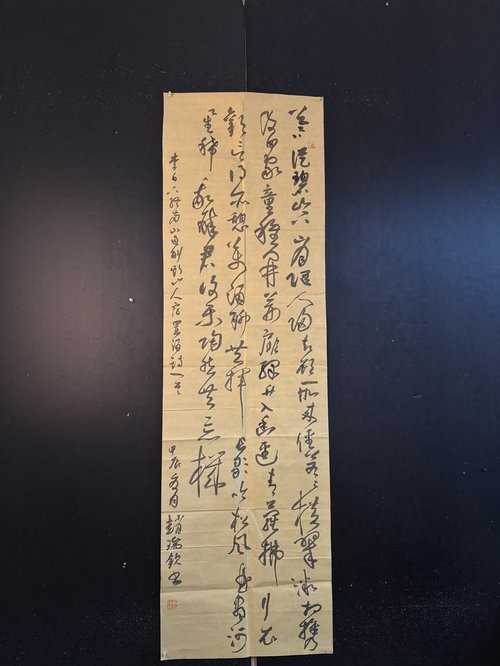 暮從碧山下山月隨人歸却顧所來徑蒼蒼橫翠微相攜
及田家童稚開荊扉綠竹入幽徑青蘿拂行衣
歡言得所憩美酒聊共揮長歌吟松風曲盡河
星稀我醉君復樂陶然共忘機
李白下終南山過斛斯山人宿置酒詩一首
甲辰月趙瑞欽書